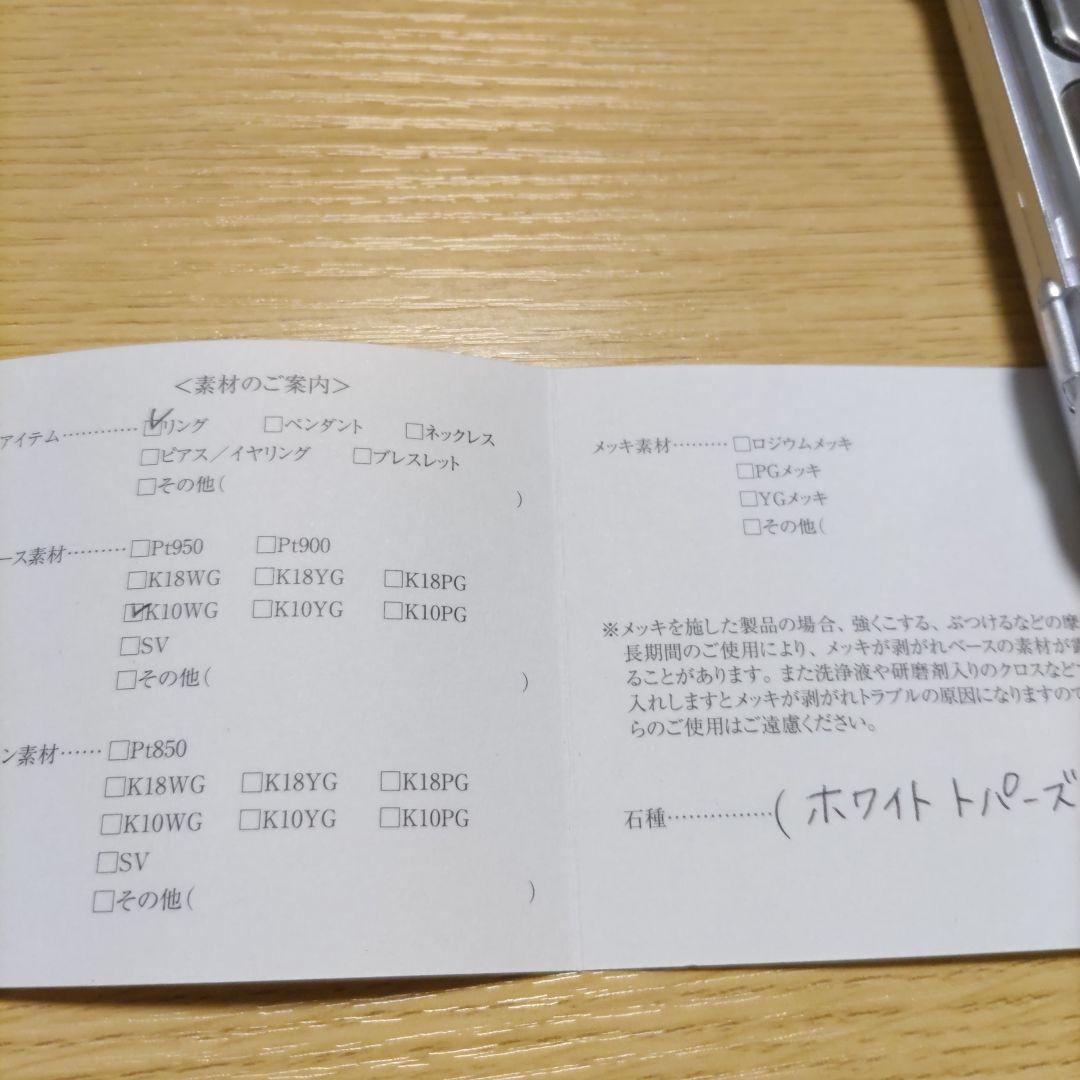 ＜素材のご案内＞
アイテム…………☑リング □ペンダント □ネックレス
□ピアス／イヤリング □ブレスレット
□その他( )
ース素材………□Pt950 □Pt900
□K18WG □K18YG □K18PG
☑K10WG □K10YG □K10PG
□SV
□その他( )
ン素材……□Pt850
□K18WG □K18YG □K18PG
□K10WG □K10YG □K10PG
□SV
□その他( )
メッキ素材………□ロジウムメッキ
□PGメッキ
□YGメッキ
□その他(
※メッキを施した製品の場合、強くこする、ぶつけるなどの摩
長期間のご使用により、メッキが剥がれベースの素材が
ることがあります。また洗浄液や研磨剤入りのクロスなど
入れしますとメッキが剥がれトラブルの原因になりますので
らのご使用はご遠慮ください。
石種……………(ホワイトトパーズ